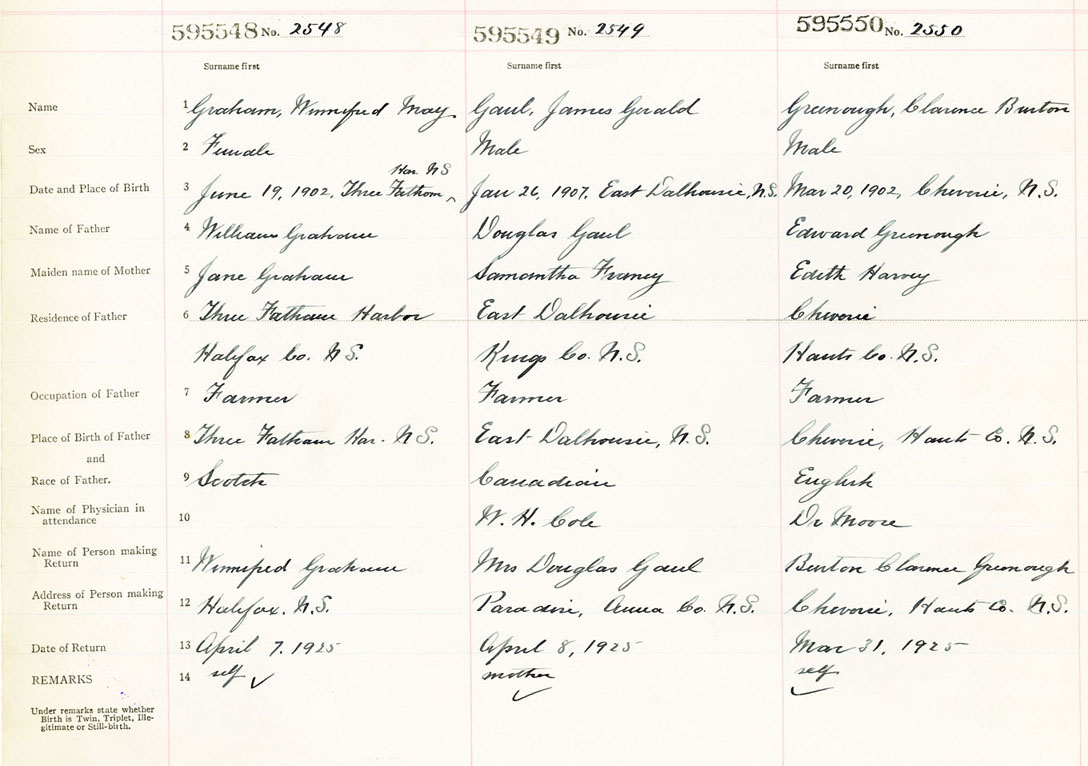 595548 No. 2548 595549 No. 2549 595550 No. 2550
Surname first Surname first Surname first
Name 1 Graham, Winnifred May. Gaul, James Gerald Greenough, Clarence Burton
Sex 2 Female Male Male
Har. N.S
Date and Place of Birth 3 June 19, 1902, Three Fathom ^ Jan 26, 1907, East Dalhousie, N.S. Mar 20, 1902, Cheverie, N.S.
Name of Father 4 William Graham Douglas Gaul Edward Greenough
Maiden name of Mother 5 Jane Graham Samantha Franey Edith Harvey
Residence of Father 6 Three Fathom Harbor East Dalhousie Cheverie
Halifax Co. N.S. Kings Co. N.S. Hants Co. N.S.
Occupation of Father 7 Farmer Farmer Farmer
Place of Birth of Father 8 Three Fathom Har. N.S. East Dalhousie, N.S. Cheverie, Hants Co. N.S.
and
Race of Father. 9 Scotch Canadian English
Name of Physician in
attendance 10 W. H. Cole Dr Moore
Name of Person making
Return 11 Winnifred Graham Mrs Douglas Gaul Burton Clarence Greenough
Address of Person making
Return 12 Halifax. N.S. Paradise, Anna Co. N.S. Cheverie, Hants Co. N.S.
Date of Return 13 April 7, 1925 April 8, 1925 Mar 31, 1925
REMARKS 14 self ✓ mother ✓ self ✓
Under remarks state whether
Birth is Twin, Triplet, Ille-
gitimate or Still-birth.